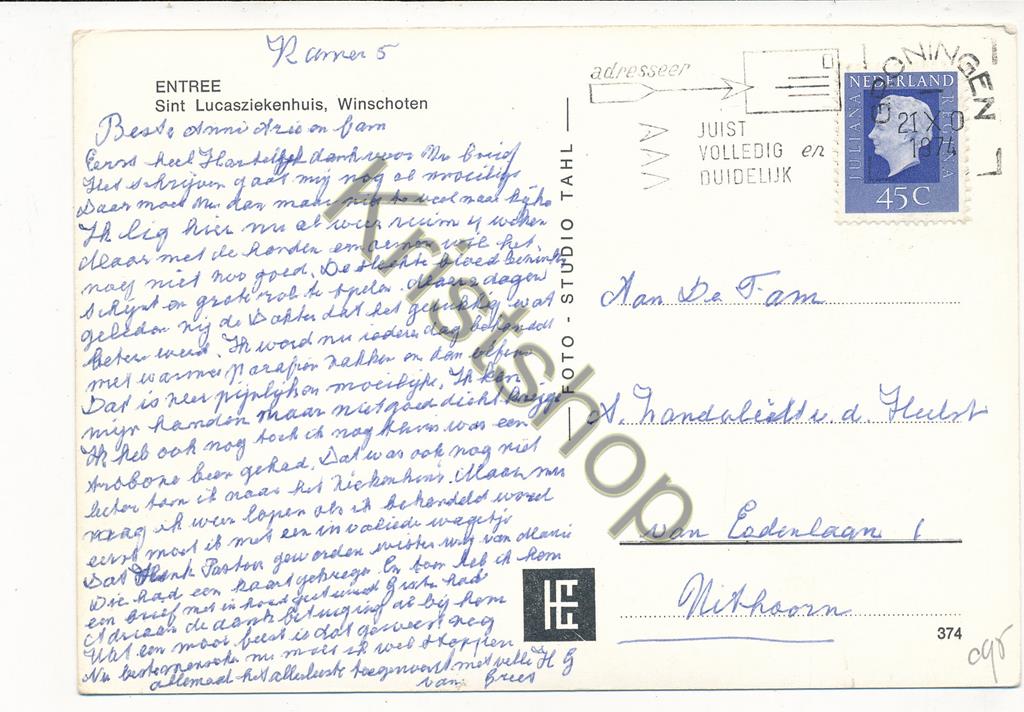 Kamer 5
ENTREE
Sint Lucasziekenhuis, Winschoten
Beste Annie Arie en fam
Eerst heel Hartelijk dank voor Uw brief
Het schrijven gaat mij nog al moeilijk
Daar moet U dan maar niet te veel naar kijken
Ik lig hier nu al weer ruim 4 weken
Maar met de handen en armen wil het
nog niet zoo goed. De slechte bloed
schijnt een grote rol te spelen. dagen
geleden zij de Dokter dat het gelukkig wat
beter werd. Ik word nu iedere dag behandelt
met warme parafien pakken en dan
Dat is zeer pijnlijk en moeilijk. Ik kan
mijn handen maar niet goed dicht krijgen
Ik heb ook nog toch ik nog thuis was een
been gehad. Dat was ook nog niet
beter toen ik naar het Ziekenhuis. Maar nu
mag ik weer lopen als ik behandeld word
eerst moet ik met een invaliede wagetje
Dat Henk Pastoor geworden wisten wij van Marie
Die had een kaart gekregen En toen heb ik hem
een brief met in houd gestuurd
Adriaan de dankbetuiging bij hem
Wat een mooi feest is dat geweest nog
Nu beste mensen nu moet ik weer stoppen
allemaal het allerbeste toegewenst met vele H G
van Grees
FOTO - STUDIO TAHL
HEF
adresseer
JUIST
VOLLEDIG en
DUIDELIJK
GRONINGEN
21 X 0
1874
NEDERLAND
JULIANA
REGINA
45 C
Aan De Fam
A. v.d. Hulst
van 1
Uithoorn
374
c95
Kristshop